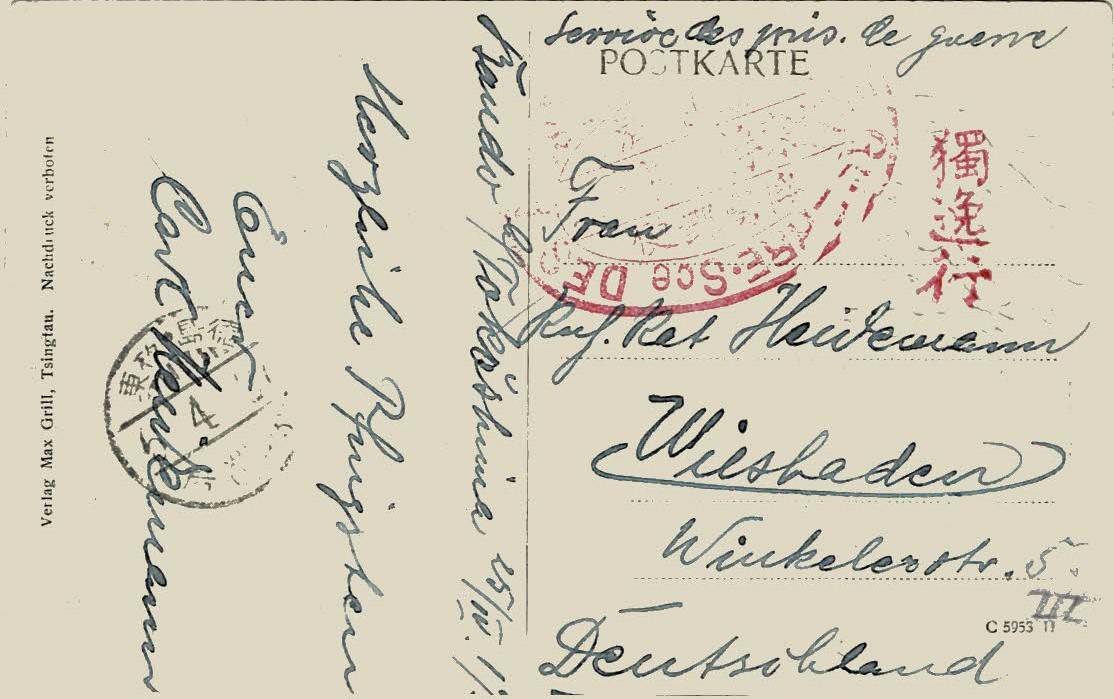 Service des pris. de guerre
POSTKARTE
獨逸行
Frau
Heidemann
Wiesbaden
Winkelerstr. 5
III
Deutschland
C 5953
Bando b/Tokushima 25/IV.
Herzliche Pfingsten
Carl Heidemann
4
RE·Sce DE
Verlag Max Grill, Tsingtau. Nachdruck verboten